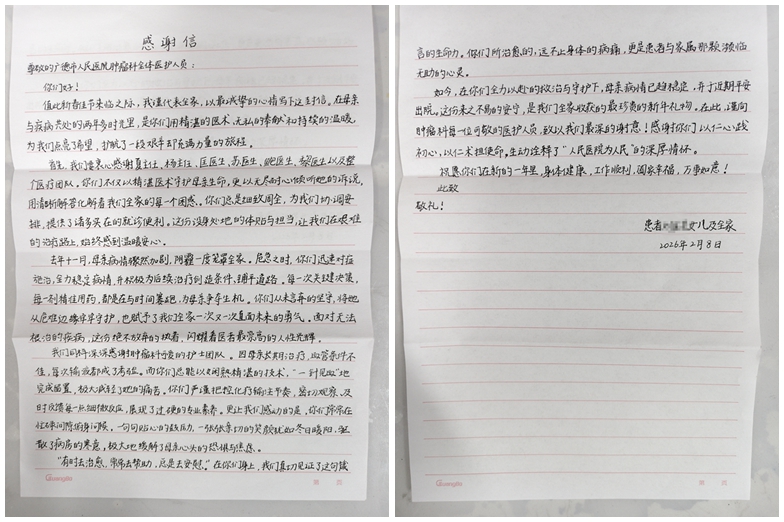 感谢信
尊敬的广德市人民医院肿瘤科全体医护人员:
你们好!
值此新春佳节来临之际,我谨代表全家,以最诚挚的心情写下这封信。在母亲
与疾病共处的两年多时光里,是你们用精湛的医术、无私的奉献和持续的温暖,
为我们点亮了希望,护航了一段艰辛却充满力量的旅程。
首先,我们要衷心感谢夏主任、杨主任、匡医生、苏医生、鲍医生、黎医生以及整
个医疗团队。你们不仅以精湛医术守护母亲生命,更以无尽耐心倾听她的诉说,
用清晰解答化解着我们全家的每一个困惑。你们总是细致周全,为我们协调安
排,提供了诸多实在的就诊便利。这份设身处地的体贴与担当,让我们在艰难
的治疗路上,始终感到温暖安心。
去年十一月,母亲病情骤然加剧,阴霾一度笼罩全家。危急之时,你们迅速对症
施治,全力稳定病情,并积极为后续治疗创造条件、铺平道路。每一次关键决策,
每一刻精准用药,都是在与时间赛跑,为母亲争夺生机。你们从未言弃的坚守,将她
从危难边缘牢牢守护,也赋予了我们全家一次又一次直面未来的勇气。面对无法
根治的疾病,这份绝不放弃的执着,闪耀着医者最崇高的人性光辉。
我们同样深深感谢肿瘤科可爱的护士团队。因母亲长期治疗,血管条件不
佳,每次输液都成了考验。而你们总能以娴熟精湛的技术,"一针见血"地
完成留置,极大减轻了她的痛苦。你们严谨把控化疗输注节奏,密切观察、及
时反馈每一点细微反应,展现了过硬的专业素养。更让我们感动的是,你们常常在
忙碌间隙俯身问候。一句句贴心的鼓励,一张张亲切的笑颜犹如冬日暖阳,驱
散了病房的寒意,极大地缓解了母亲心头的恐惧与焦虑。
"有时去治愈,常常去帮助,总是去安慰。"在你们身上,我们真切见证了这句箴
Guangbo
第 页
言的生命力。你们所治愈的,远不止身体的病痛,更是患者与家属那颗濒临
无助的心灵。
如今,在你们全力以赴的救治与守护下,母亲病情已趋稳定,并于近期平安
出院。这份来之不易的安宁,是我们全家收获的最珍贵的新年礼物。在此,谨向
肿瘤科每一位可敬的医护人员,致以我们最深的谢意!感谢你们以仁心践
初心,以仁术担使命。生动诠释了"人民医院为人民"的深厚情怀。
祝愿你们在新的一年里,身体健康,工作顺利,阖家幸福,万事如意!
此致
敬礼!
患者 女儿及全家
2026年2月8日
Guangbo
第 页